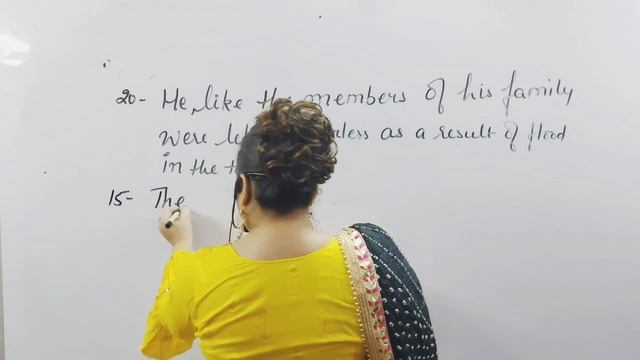 20- He, like the members of his family
were as a result of flood
in the
15- The